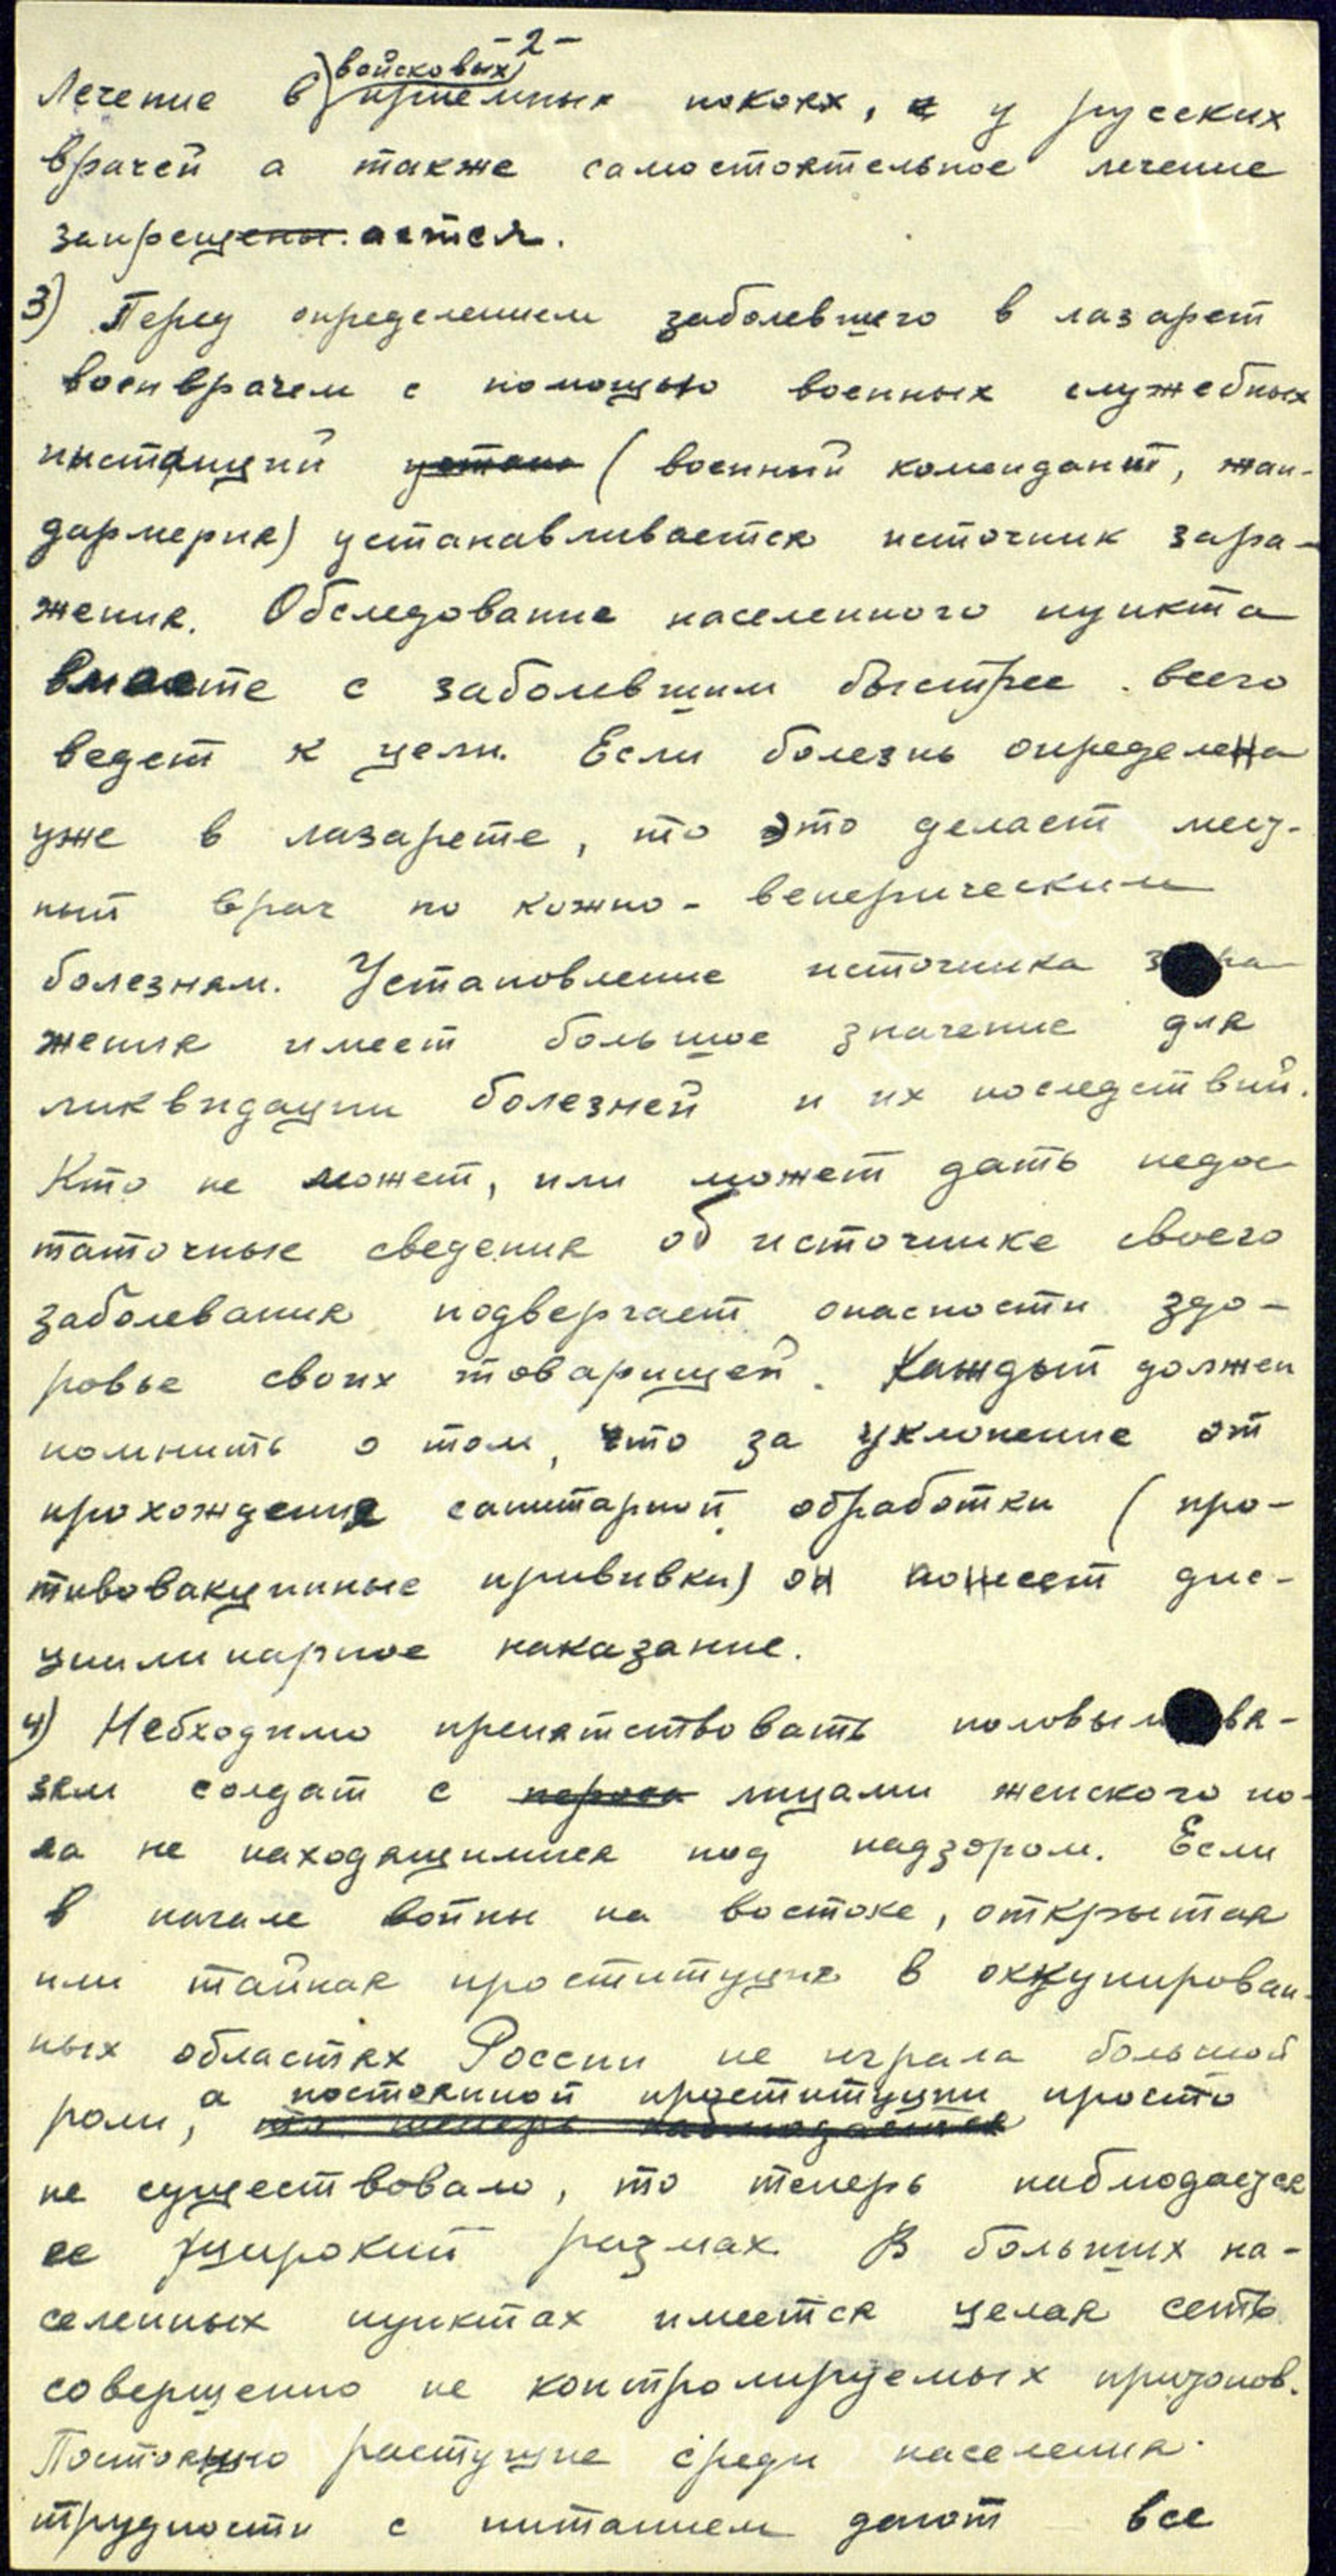 -2-
войсковых
Лечение в приемных покоях, и у русских
врачей а также самостоятельное лечение
запрещены.ается.
3) Перед определением заболевшего в лазарет
военврачем с помощью военных служебных
инстанций устано (военный комендант, жан-
дармерия) устанавливается источник зара-
жения. Обследование населенного пункта
вместе с заболевшим быстрее всего
ведет к цели. Если болезнь определена
уже в лазарете, то это делает мест-
ный врач по кожно-венерическим
болезням. Установление источника зара-
жения имеет большое значение для
ликвидации болезней и их последствий.
Кто не может, или может дать недос-
таточные сведения об источнике своего
заболевания подвергает опасности здо-
ровье своих товарищей. Каждый должен
помнить о том, что за уклонение от
прохождения санитарной обработки (про-
тивовакцинные прививки) он понесет дис-
циплинарное наказание.
4) Небходимо препятствовать половым свя-
зям солдат с лицами женского по-
ла не находящимися под надзором. Если
в начале войны на востоке, открытая
или тайная проституция в оккупирован-
ных областях России не играла большой
роли, а постоянной проституции просто
то теперь наблюдается
не существовало, то теперь наблюдается
ее широкий размах. В больших на-
селенных пунктах имеется целая сеть
совершенно не контролируемых притонов.
Постоянно растущие среди населения
трудности с питанием делают все